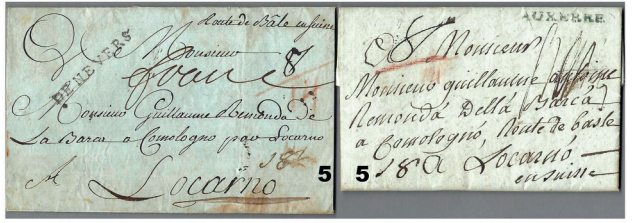 Route de Bâle en Suisse
Monsieur
DE NEVERS
franc
8
Monsieur Guillaume Remonda de
La Barca a Comologno par Locarno
182
A Locarno
5
AUXERRE
Monsieur
Monsieur guillaume antoine
Remonda Della Barca
a Comologno, Route de basle
18 a Locarno
en suisse
5